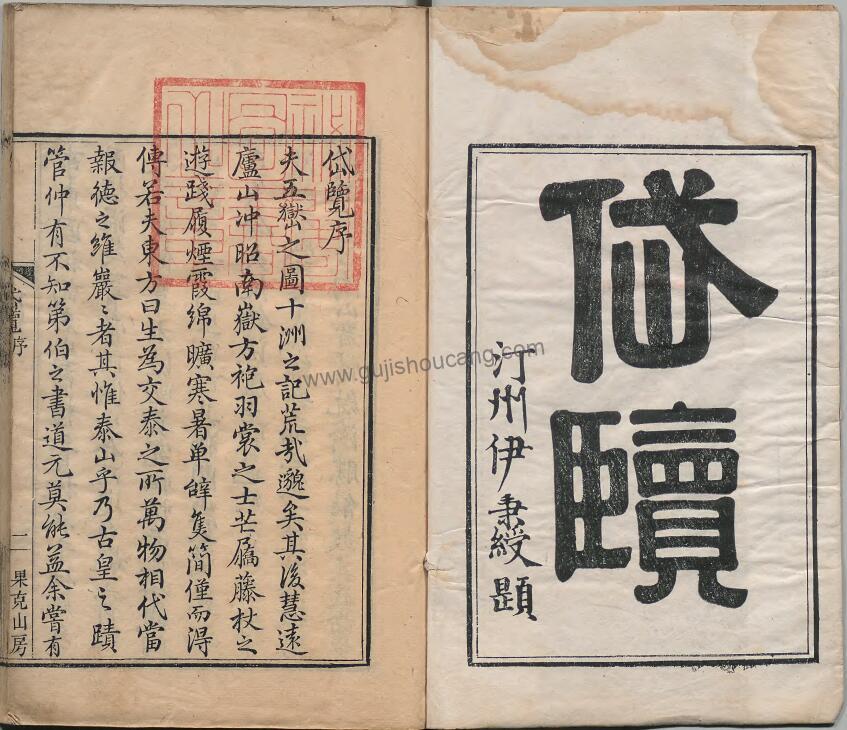 岱覽
汀州伊秉綬題
岱覽序
夫五嶽之圖十洲之記荒𢦏邈矣其後慧遠
廬山沖昭南嶽方袍羽裳之士芒屩藤杖之
遊踐履煙霞綿曠寒暑單辭隻簡僅而得
傳若夫東方曰生為交泰之所萬物相代當
報德之維巖〻者其惟泰山乎乃古皇之蹟
管仲有不知第伯之書道元莫能益余嘗有
岱覽序
二
果克山房
www.gujishoucang.com